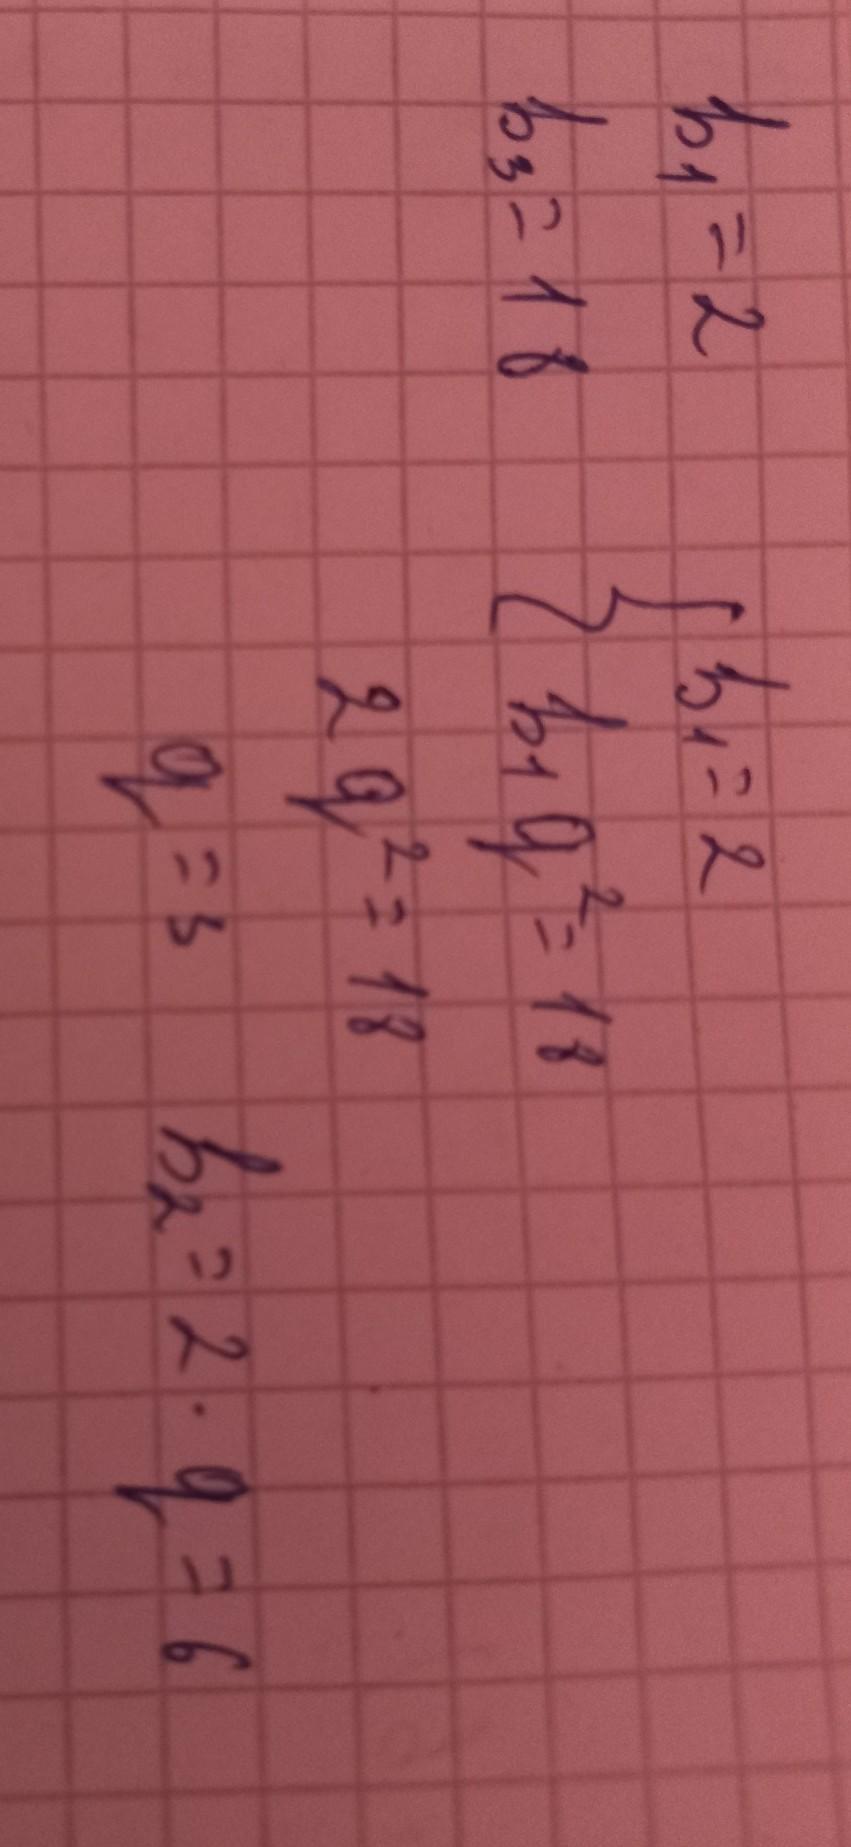 b₁ = 2 { b₁ = 2
b₃ = 18 b₁q² = 18
2q² = 18
q = 3 b₂ = 2 · q = 6